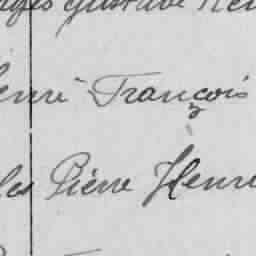 Gustave
enri François
les Pierre Henri